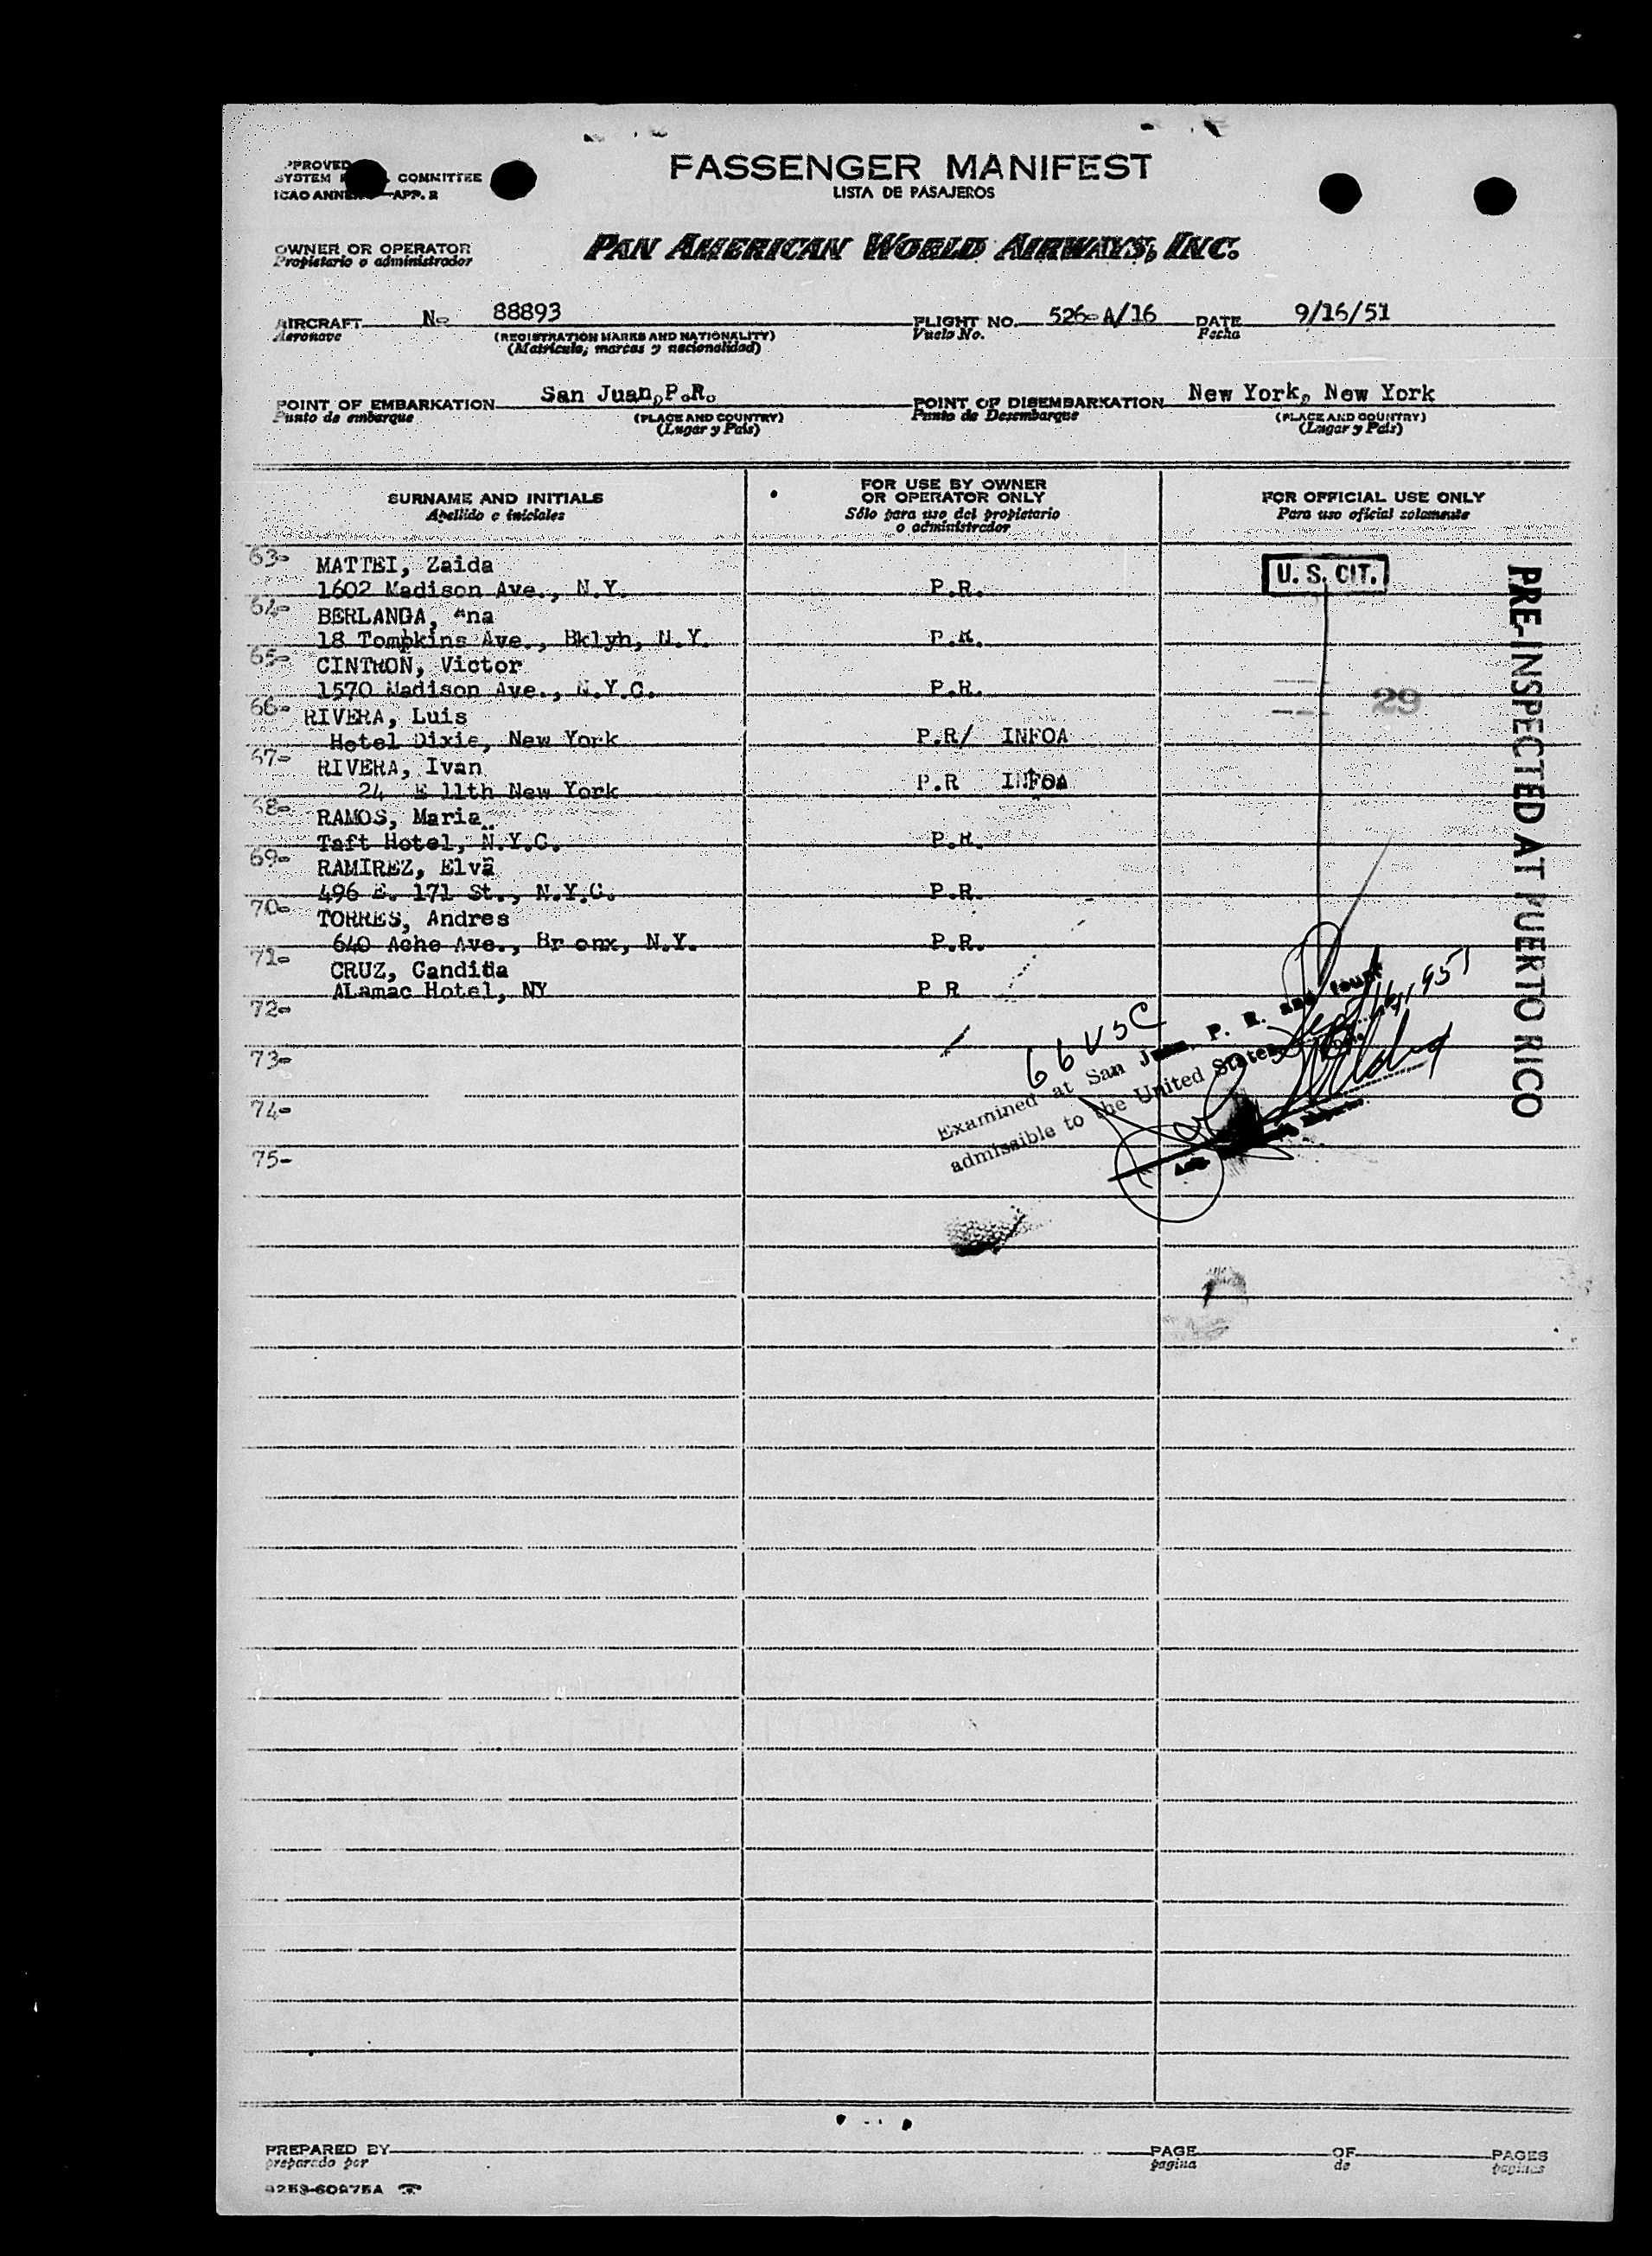 PASSENGER MANIFEST
LISTA DE PASAJEROS
PPROVED
SYSTEM COMMITTEE
ICAO ANNEX APP. 2
OWNER OR OPERATOR
Propietario o administrador
PAN AMERICAN WORLD AIRWAYS, INC.
AIRCRAFT N- 88893 FLIGHT NO. 526-A/16 DATE 9/16/51
Aeronave (REGISTRATION MARKS AND NATIONALITY) Vuelo No. Fecha
(Matrícula, marcas y nacionalidad)
POINT OF EMBARKATION San Juan, P.R. POINT OF DISEMBARKATION New York, New York
Punto de embarque (PLACE AND COUNTRY) Punto de Desembarque (PLACE AND COUNTRY)
(Lugar y País) (Lugar y País)
SURNAME AND INITIALS
Apellido e iniciales
FOR USE BY OWNER
OR OPERATOR ONLY
Sólo para uso del propietario
o administrador
FOR OFFICIAL USE ONLY
Para uso oficial solamente
63- MATTEI, Zaida
1602 Madison Ave., N.Y. P.R. U. S. CIT.
64- BERLANGA, Ana
18 Tompkins Ave., Bklyh, N.Y. P.R.
65- CINTRON, Victor
1570 Madison Ave., N.Y.C. P.R.
29
66- RIVERA, Luis
Hotel Dixie, New York P.R/ INFOA
67- RIVERA, Ivan
24 E 11th New York P.R INFOA
68- RAMOS, Maria
Taft Hotel, N.Y.C. P.R.
69- RAMIREZ, Elva
496 E. 171 St., N.Y.C. P.R.
70- TORRES, Andres
640 Ache Ave., Br onx, N.Y. P.R.
71- CRUZ, Candida
ALamac Hotel, NY P R
72-
73-
74-
75-
PRE-INSPECTED AT PUERTO RICO
66 USC
Examined at San Juan, P. R. and found
admissible to the United States
Sept 16, 1951
PREPARED BY PAGE OF PAGES
preparado por pagina de paginas